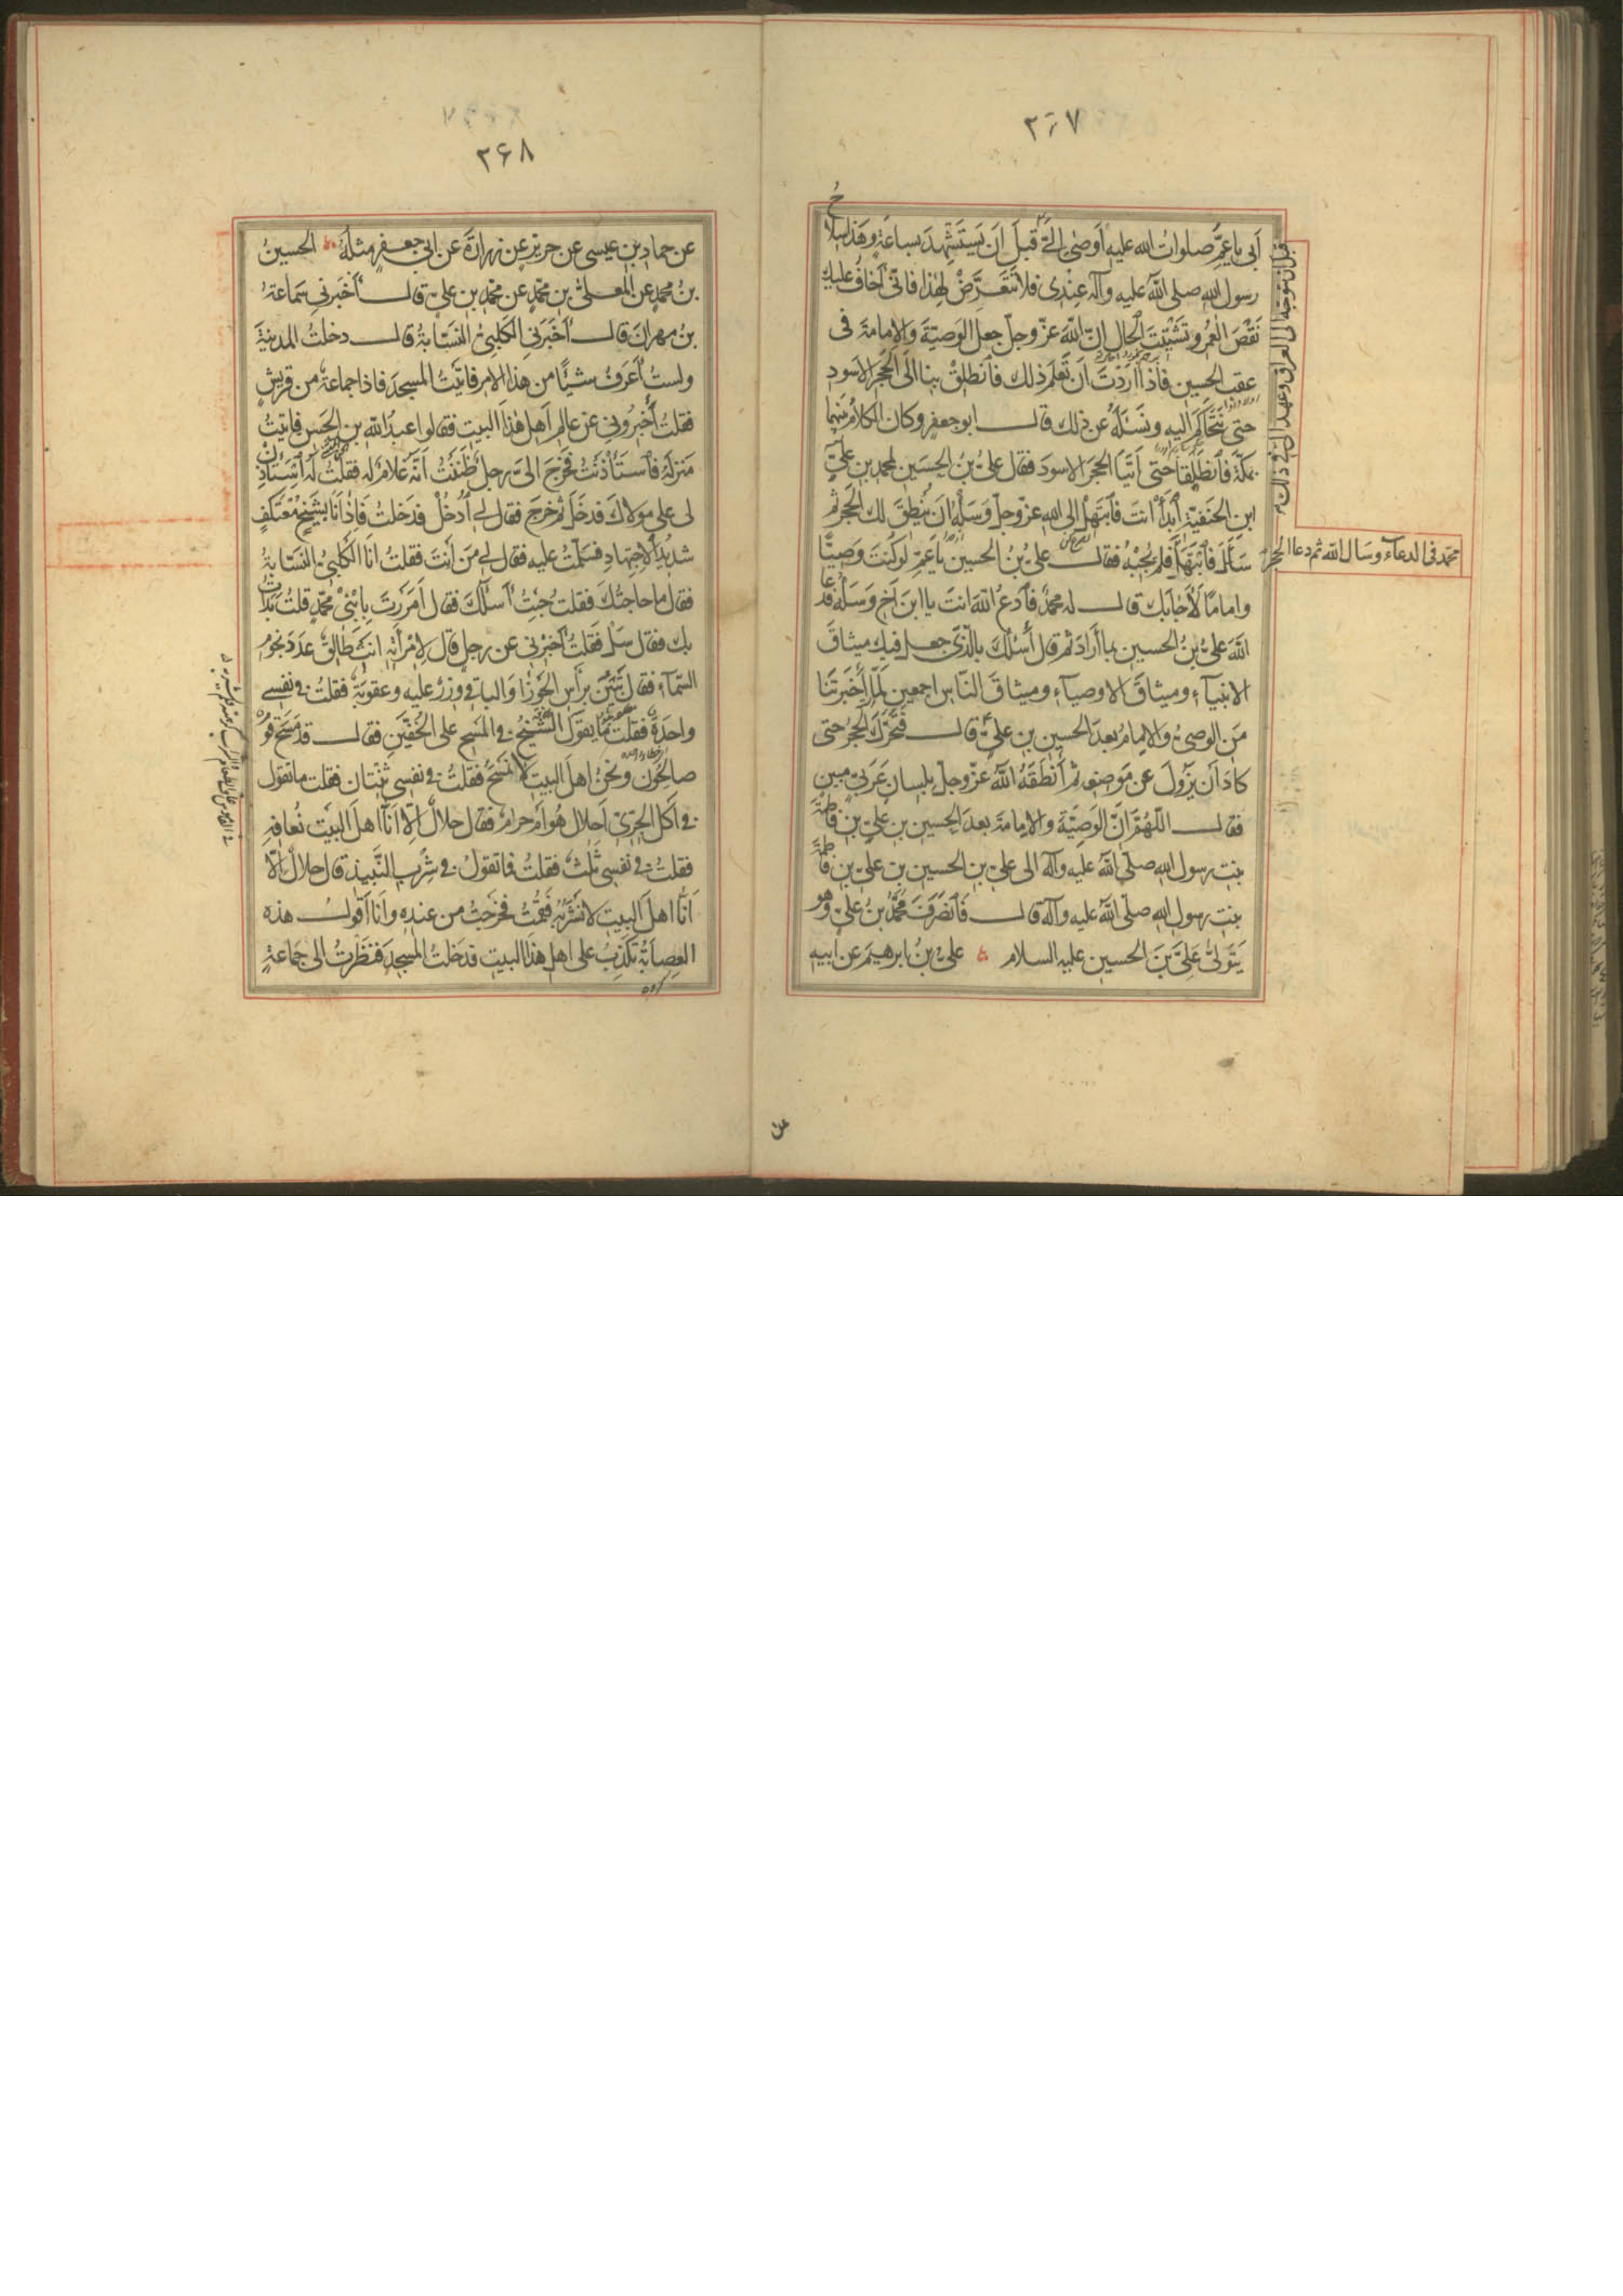 ۲۶۷
أبى يا عمّ صلوات الله عليه أوصى الىّ قبل أن يستشهد بساعة وهذا سلاح
رسول الله صلى الله عليه وآله عندى فلا تتعرّض لهذا فانّى أخاف عليك
نقص العمر وتشتّت الحال انّ الله عزّ وجلّ جعل الوصيّة والامامة فى
عقب الحسين فاذا أردت أن تعلم ذلك فانطلق بنا الى الحجر الاسود
حتى نتحاكم اليه ونسئله عن ذلك قال ابو جعفر وكان الكلام بينهما
بمكّة فانطلقا حتى أتيا الحجر الاسود فقال علىّ بن الحسين لمحمد بن علىّ
ابن الحنفيّة ابدأ أنت فابتهل الى الله عزّ وجلّ وسله أن ينطق لك الحجر ثم
سأل فابتهل فلم يجبه فقال علىّ بن الحسين يا عمّ لو كنت وصيّا
واماما لأجابك قال له محمد فادع الله انت يا ابن أخ وسله فدعا
الله علىّ بن الحسين بما أراد ثم قال أسئلك بالّذى جعل فيك ميثاق
الانبياء وميثاق الاوصياء وميثاق النّاس اجمعين لمّا أخبرتنا
من الوصىّ والامام بعد الحسين بن علىّ قال فتحرّك الحجر حتى
كاد أن يزول عن موضعه ثم أنطقه الله عزّ وجلّ بلسان عربىّ مبين
فقال اللّهمّ انّ الوصيّة والامامة بعد الحسين بن علىّ بن فاطمة
بنت رسول الله صلّى الله عليه وآله الى علىّ بن الحسين بن علىّ بن فاطمة
بنت رسول الله صلّى الله عليه وآله قال فانصرف محمّد بن علىّ وهو
يتولّى علىّ بن الحسين عليه السلام علىّ بن ابرهيم عن أبيه
قبل ان يتوجه الى العراق وعهد الىّ فى ذلك
محمّد فى الدعاء وسال الله ثم دعا الحجر
عن
۲۶۸
عن حماد بن عيسى عن حريز عن زرارة عن ابى جعفر مثله الحسين
بن محمد عن المعلّى بن محمّد عن محمّد بن علىّ قال أخبرنى سماعة
بن مهران قال أخبرنى الكلبىّ النسّابة قال دخلت المدينة
ولست أعرف شيئا من هذا الامر فاتيت المسجد فاذا جماعة من قريش
فقلت أخبرونى عن عالم أهل هذا البيت فقالوا عبد الله بن الحسن فاتيت
منزله فاستأذنت فخرج الىّ رجل ظننت أنّه غلام له فقلت له استاذن
لى على مولاك فدخل ثم خرج فقال لى أدخل فدخلت فاذا أنا بشيخ معتكف
شديد الاجتهاد فسلّمت عليه فقال لى من أنت فقلت انا الكلبىّ النسّابة
فقال ما حاجتك فقلت جئت أسئلك فقال أمررت بابنى محمّد قلت بدأت
بك فقال سل فقلت أخبرنى عن رجل قال لامرأته انت طالق عدد نجوم
السّماء فقال تبين برأس الجوزا والباقى وزر عليه وعقوبة فقلت فى نفسى
واحدة فقلت ما يقول الشيخ فى المسح على الخفّين فقال قد مسح قوم
صالحون ونحن اهل البيت لا نمسح فقلت فى نفسى ثنتان فقلت ما تقول
فى أكل الجرّىّ أحلال هو أم حرام فقال حلال الّا انّا اهل البيت نعافه
فقلت فى نفسى ثلث فقلت فما تقول فى شرب النّبيذ قال حلال الّا
أنّا اهل البيت لا نشربه فقمت فخرجت من عنده وأنا أقول هذه
العصابة تكذب على اهل هذا البيت فدخلت المسجد فنظرت الى جماعة
گروه